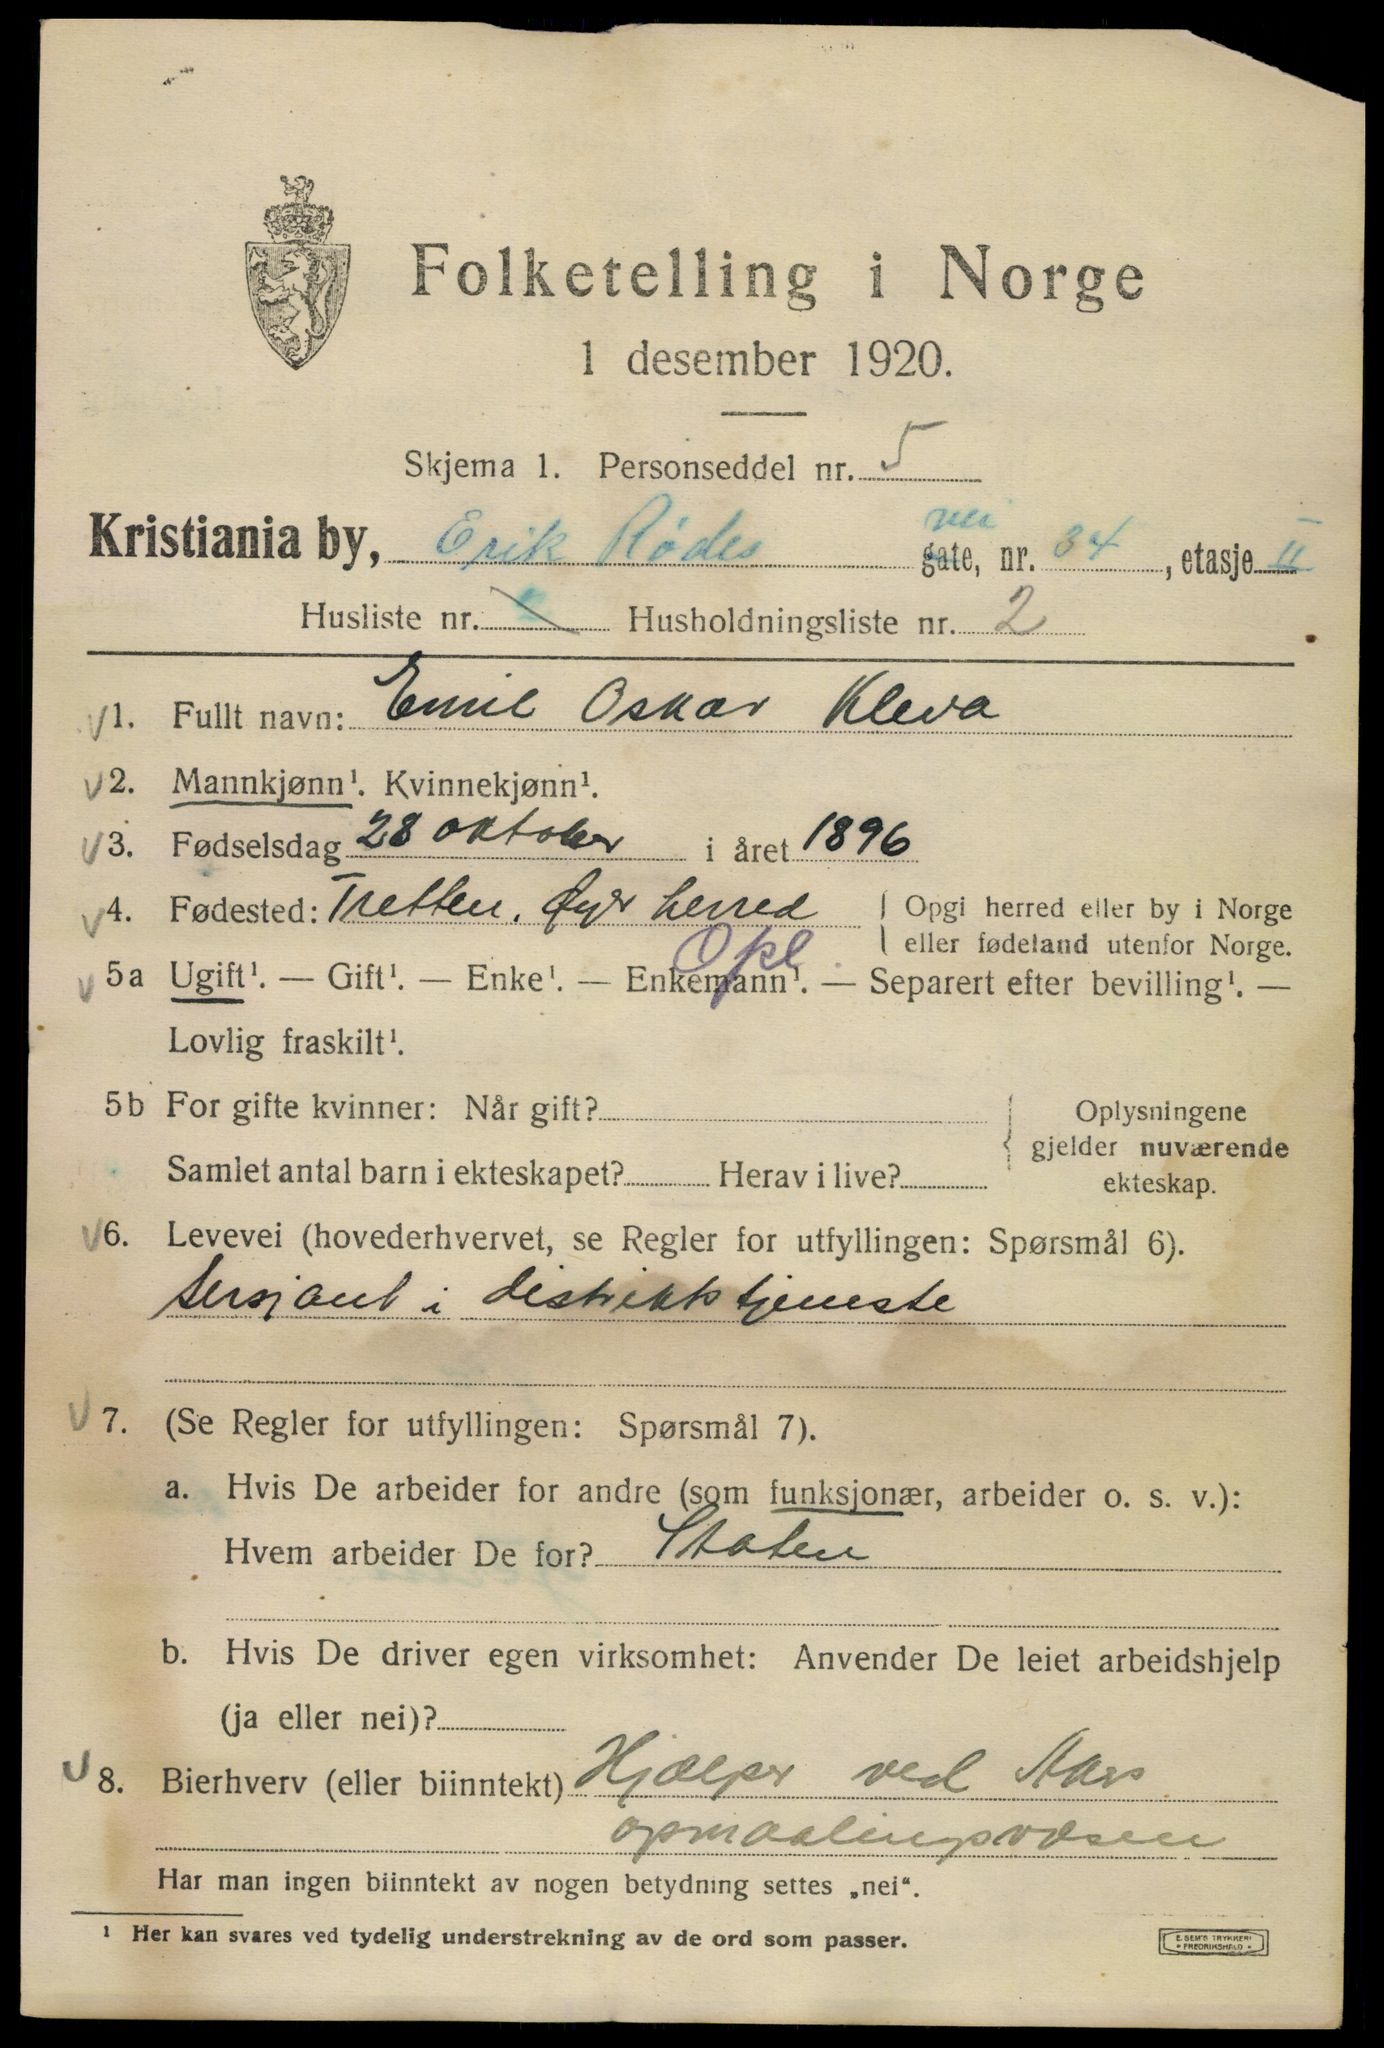 Folketelling i Norge
1 desember 1920.
Skjema 1. Personseddel nr. 5
Kristiania by, Erik Rødes vei gate, nr. 34, etasje II
Husliste nr. Husholdningsliste nr. 2
1. Fullt navn: Emil Oskar Kleva
2. Mannkjønn¹. Kvinnekjønn¹.
3. Fødselsdag 28 oktober i året 1896
4. Fødested: Tretten, Øyer herred Opgi herred eller by i Norge
Opl. eller fødeland utenfor Norge.
5a Ugift¹. — Gift¹. — Enke¹. — Enkemann¹. — Separert efter bevilling¹. —
Lovlig fraskilt¹.
5b For gifte kvinner: Når gift? Oplysningene
gjelder nuværende
Samlet antal barn i ekteskapet? Herav i live? ekteskap.
6. Levevei (hovederhvervet, se Regler for utfyllingen: Spørsmål 6).
Sersjant i distriktstjeneste
7. (Se Regler for utfyllingen: Spørsmål 7).
a. Hvis De arbeider for andre (som funksjonær, arbeider o. s. v.):
Hvem arbeider De for? Staten
b. Hvis De driver egen virksomhet: Anvender De leiet arbeidshjelp
(ja eller nei)?
8. Bierhverv (eller biinntekt) Hjælper ved Akers
opmaalingsvæsen
Har man ingen biinntekt av nogen betydning settes „nei“.
¹ Her kan svares ved tydelig understrekning av de ord som passer.
E. SEM'S TRYKKERI
• FREDRIKSHALD •